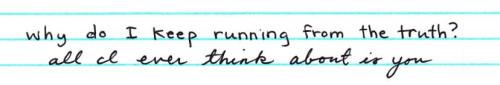 why do I keep running from the truth?
all I ever think about is you